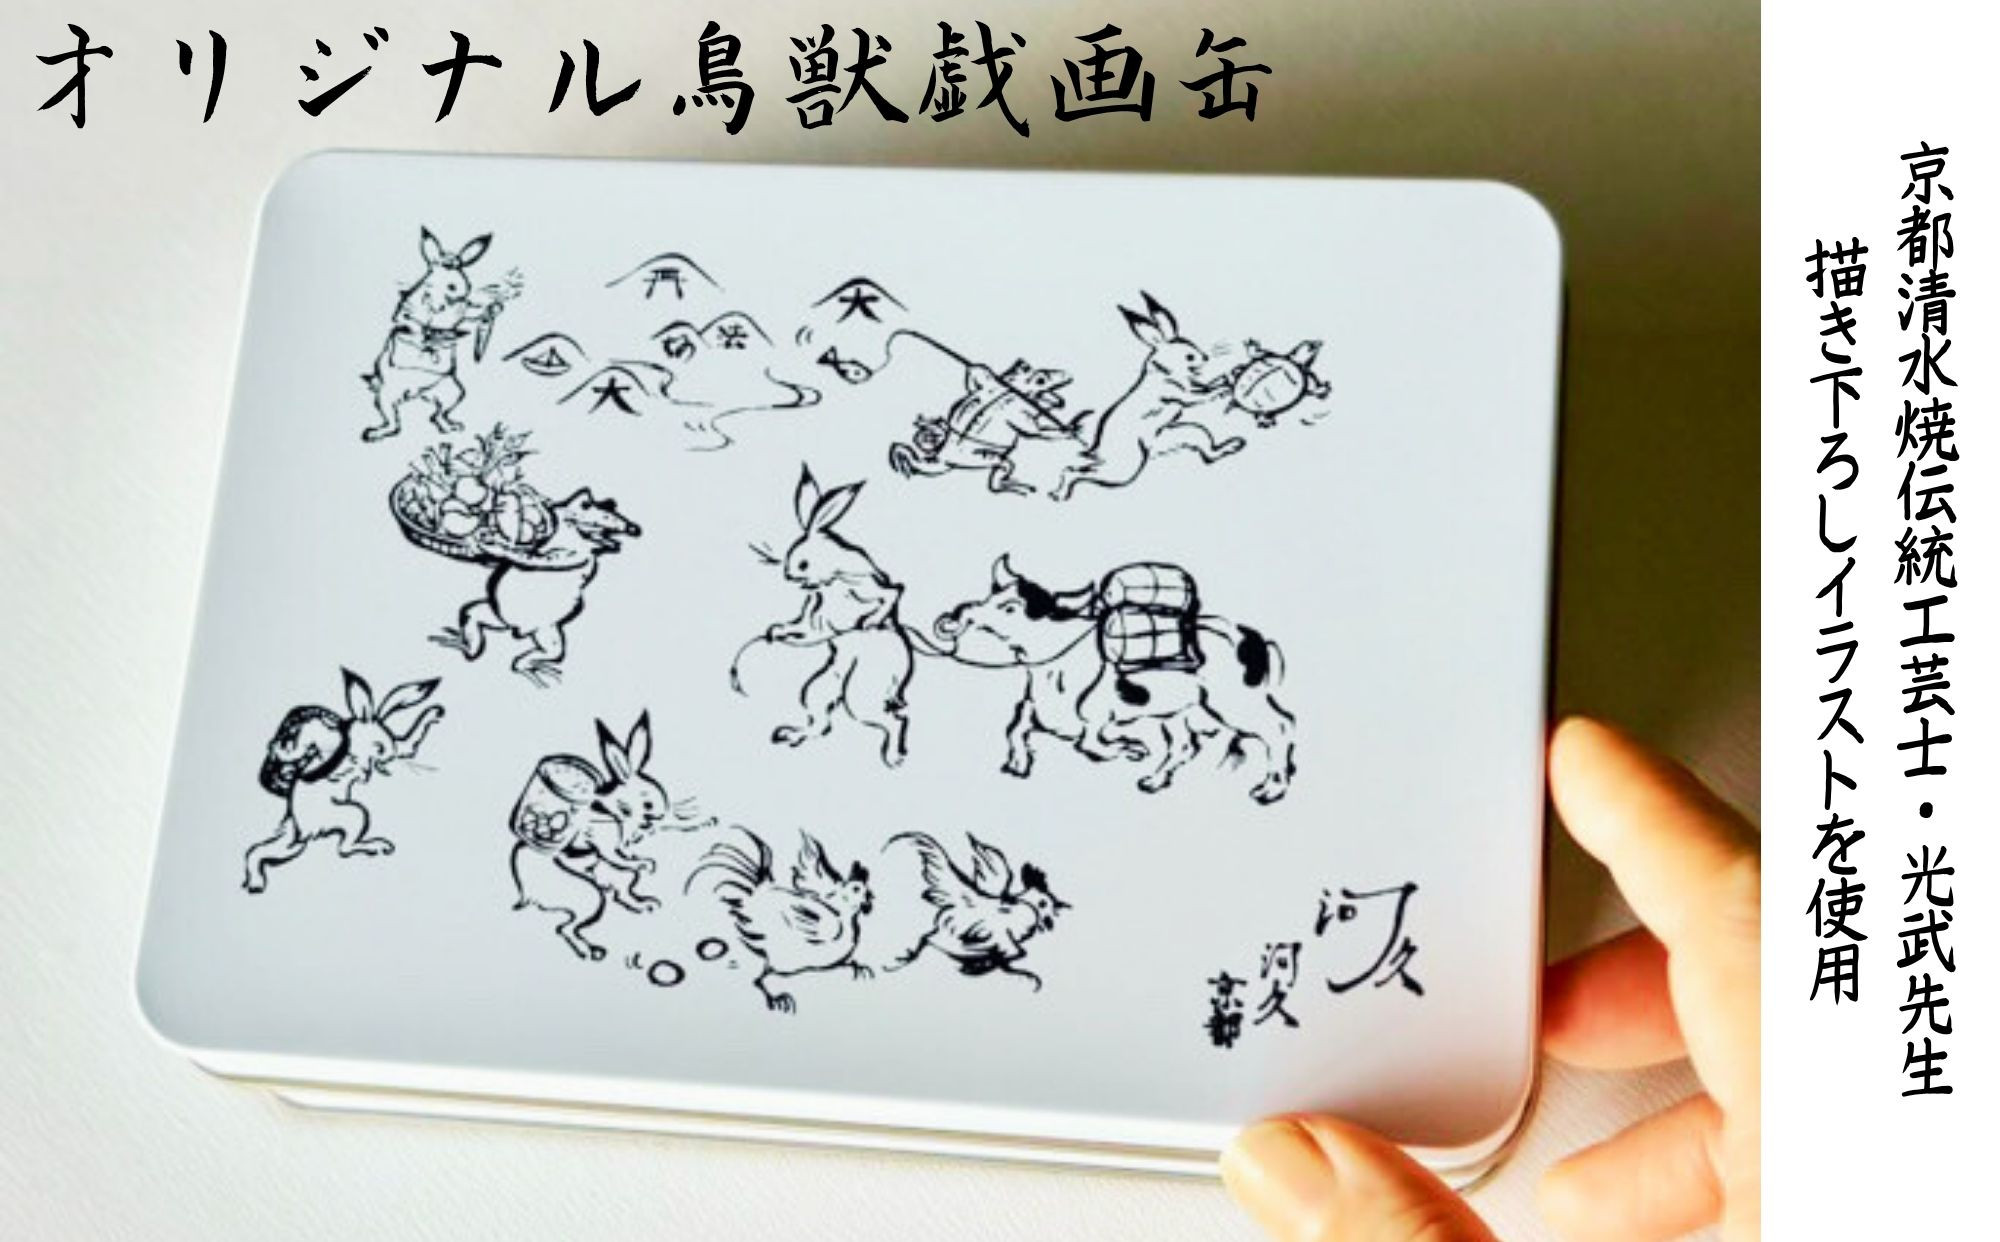 オリジナル鳥獣戯画缶
京都清水焼伝統工芸士・光武先生
描き下ろしイラストを使用
大
妙
法
大
河久
河久
京都